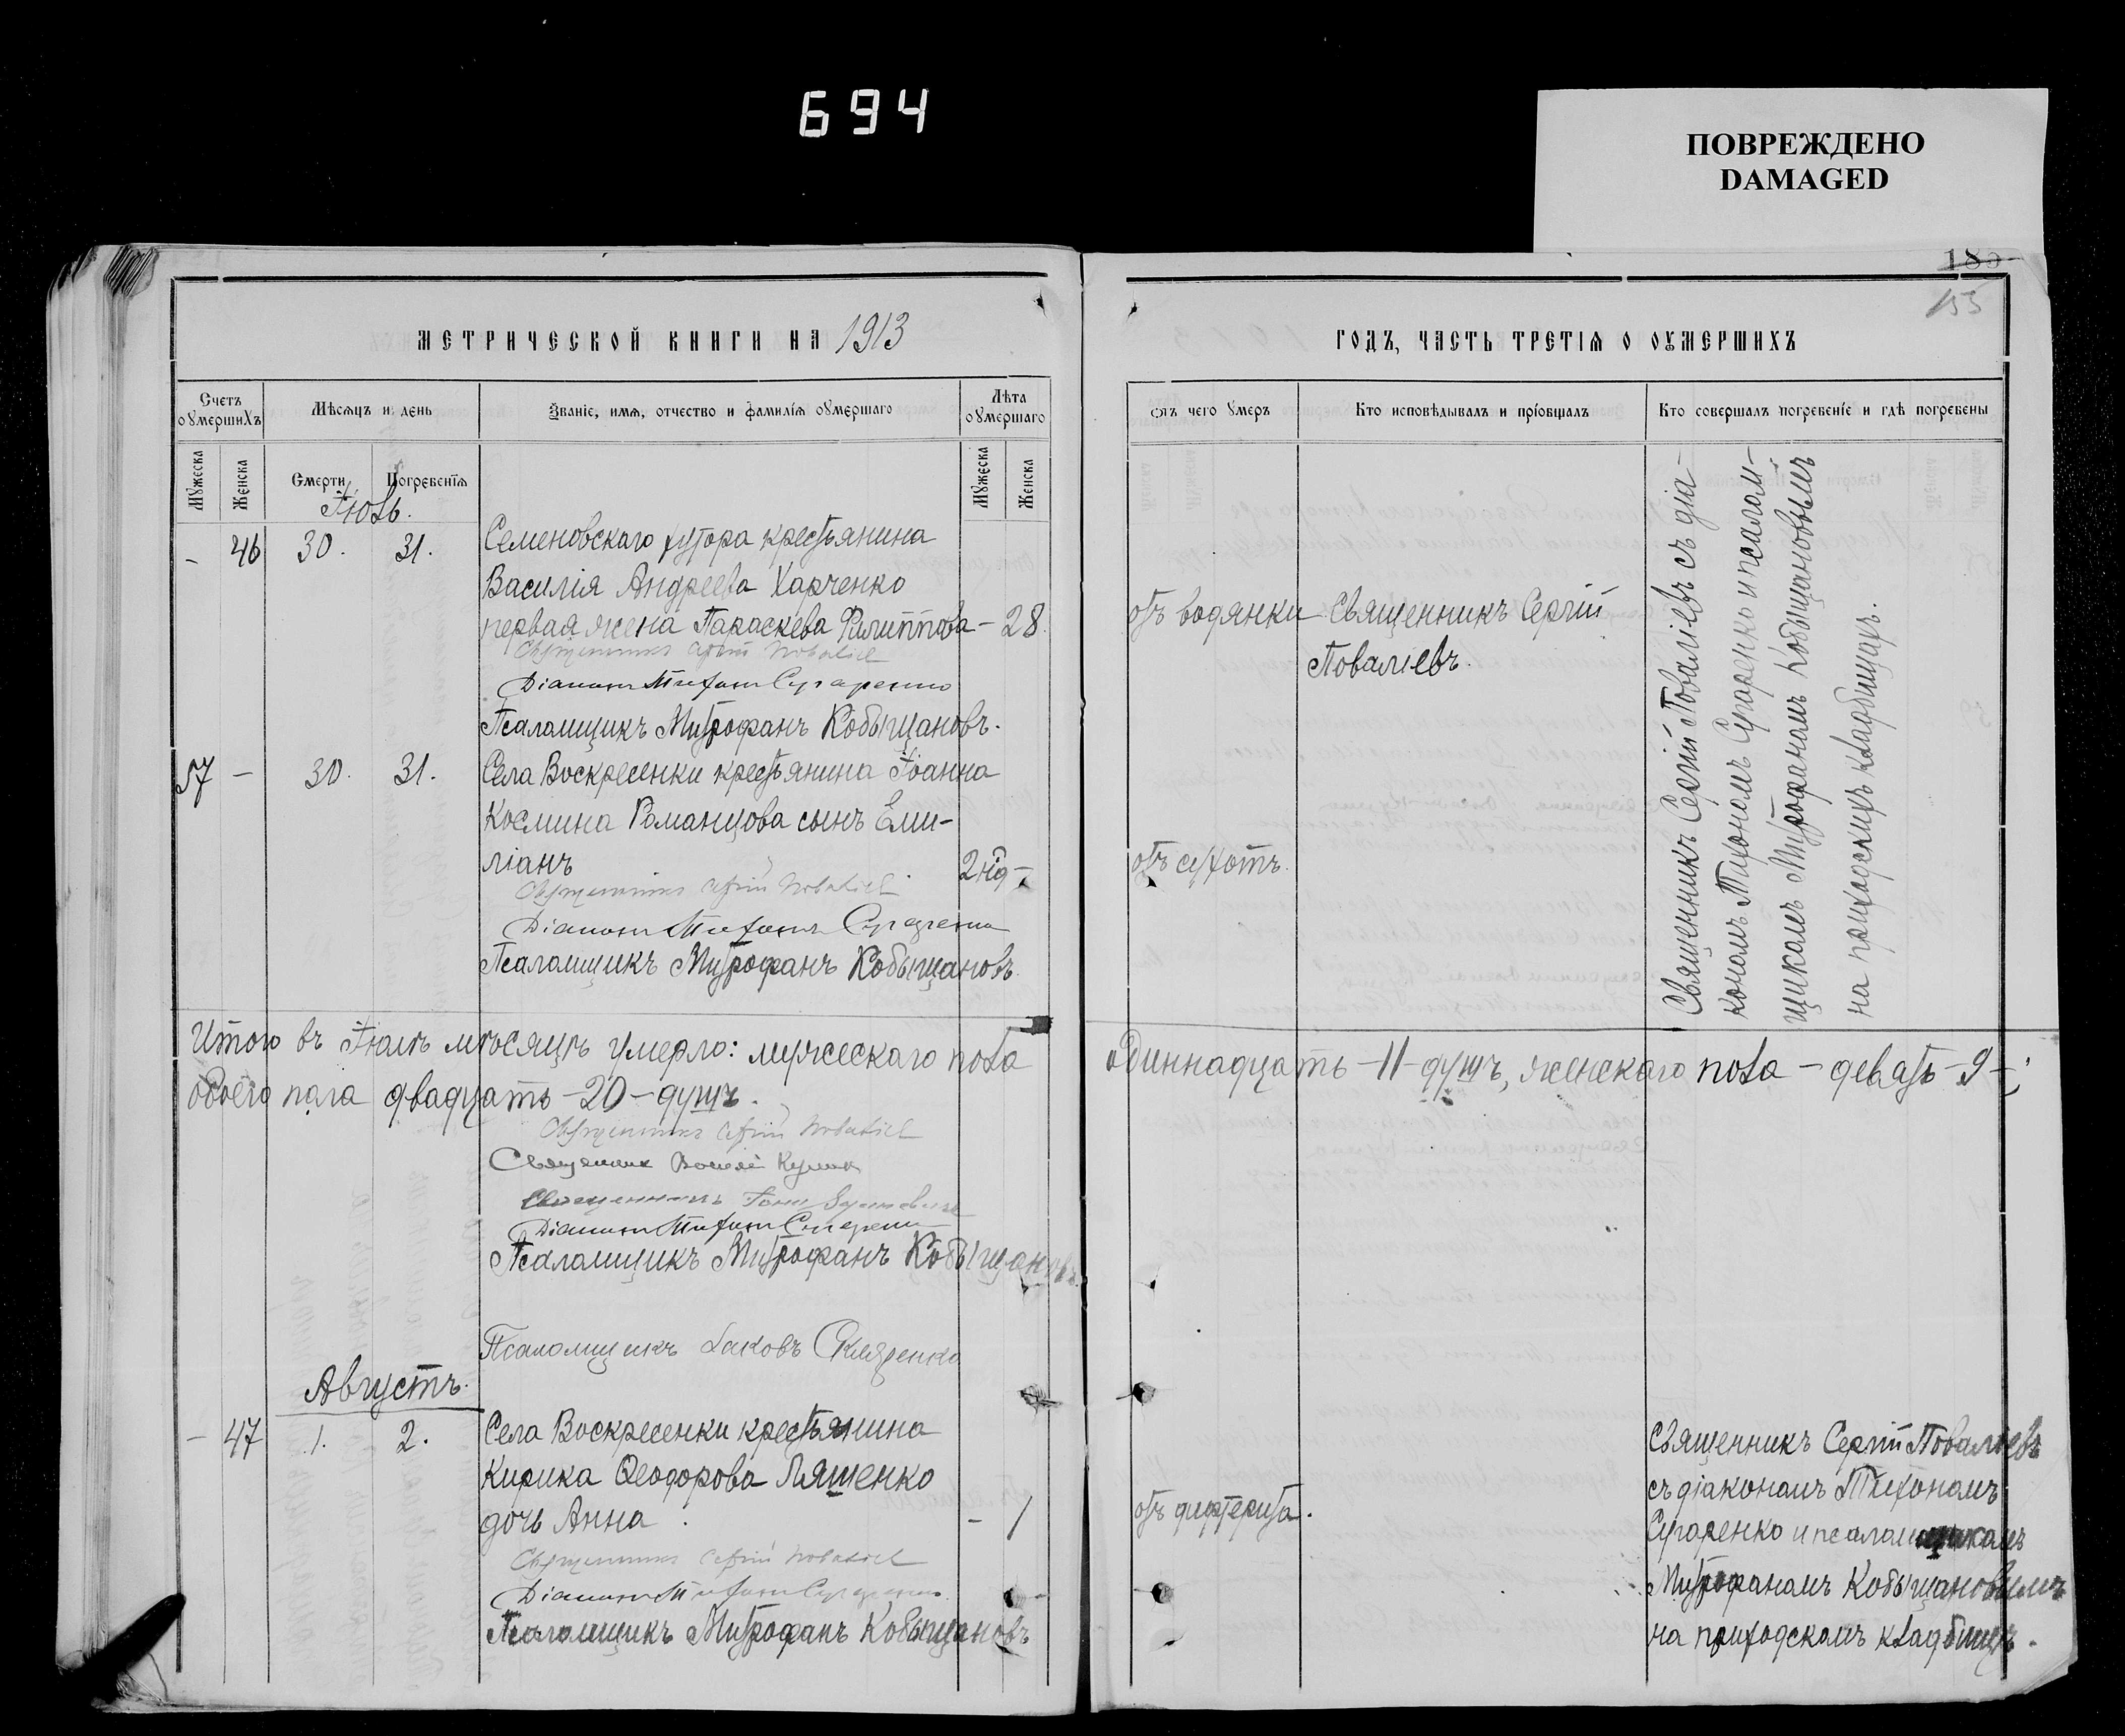 694
ПОВРЕЖДЕНО
DAMAGED
189
155
МЕТРИЧЕСКОЙ КНИГИ НА 1913
Счетъ оумершихъ
Мѣсяцъ и день
Званіе, имя, отчество и фамилія оумершаго
Лѣта оумершаго
Мужеска
Женска
Смерти
Погребенія
Мужеска
Женска
Іюль.
- 46 30. 31. Семеновскаго хутора крестьянина
Василія Андреева Харченко
первая жена Параскева Филиппова - 28
Священникъ Сергій Поваліевъ
Діаконъ Тихонъ Сугаренко
Псаломщикъ Митрофанъ Кобыщановъ.
57 - 30. 31. Села Воскресенки крестьянина Іоанна
Космина Романцова сынъ Еми-
ліанъ 2 нд -
Священникъ Сергій Поваліевъ
Діаконъ Тихонъ Сугаренко
Псаломщикъ Митрофанъ Кобыщановъ.
Итого въ Іюлѣ мѣсяцѣ умерло: мужескаго пола
обоего пола двадцать - 20 - душъ.
Священникъ Сергій Поваліевъ
Священник
Священникъ
Діаконъ Тихонъ Сугаренко
Псаломщикъ Митрофанъ Кобыщановъ.
Псаломщикъ Іаковъ Скляренко
Августъ.
- 47 1. 2. Села Воскресенки крестьянина
Кирика Ѳеодорова Ляшенко
дочь Анна. - 1
Священникъ Сергій Поваліевъ
Діаконъ Тихонъ Сугаренко
Псаломщикъ Митрофанъ Кобыщановъ
ГОДЪ, ЧАСТЬ ТРЕТІЯ О ОУМЕРШИХЪ
Отъ чего умеръ
Кто исповѣдывалъ и пріобщалъ
Кто совершалъ погребеніе и гдѣ погребены
отъ водянки Священникъ Сергій
Поваліевъ.
отъ сухотъ.
Священникъ Сергій Поваліевъ съ діа-
кономъ Тихономъ Сугаренко и псалом-
щикомъ Митрофаномъ Кобыщановымъ
на приходскихъ кладбищахъ.
одиннадцать - 11 - душъ, женскаго пола - девять - 9 - ;
отъ дифтерита.
Священникъ Сергій Поваліевъ
съ діакономъ Тихономъ
Сугаренко и псаломщикомъ
Митрофаномъ Кобыщановымъ
на приходскомъ кладбищѣ.